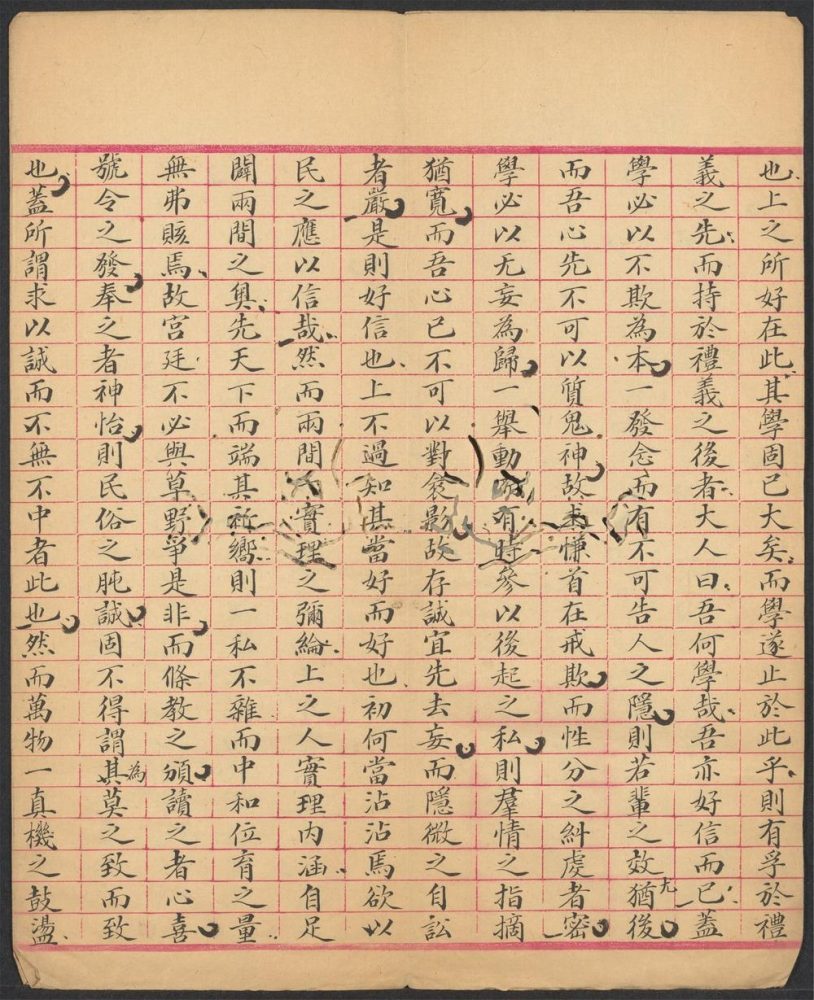 也上之所好在此其學固已大矣而學遂止於此乎則有孚於禮
義之先而持於禮義之後者大人曰吾何學哉吾亦好信而已蓋
學必以不欺為本一發念而有不可告人之隱則若輩之效猶尤後
而吾心先不可以質鬼神故求慊首在戒欺而性分之糾虔者密
學必以无妄為歸一舉動而有時參以後起之私則羣情之指摘
猶寬而吾心已不可以對衾影故存誠宜先去妄而隱微之自訟
者嚴是則好信也上不過知其當好而好也初何當沾沾焉欲以
民之應以信哉然而兩間一實理之彌綸上之人實理內涵自足
闢兩間之奧先天下而端其祈嚮則一私不雜而中和位育之量
無弗賅焉故宮廷不必與草野爭是非而條教之頒讀之者心喜
號令之發奉之者神怡則民俗之肫誠固不得謂其為莫之致而致
也蓋所謂求以誠而不無不中者此也然而萬物一真機之鼓盪